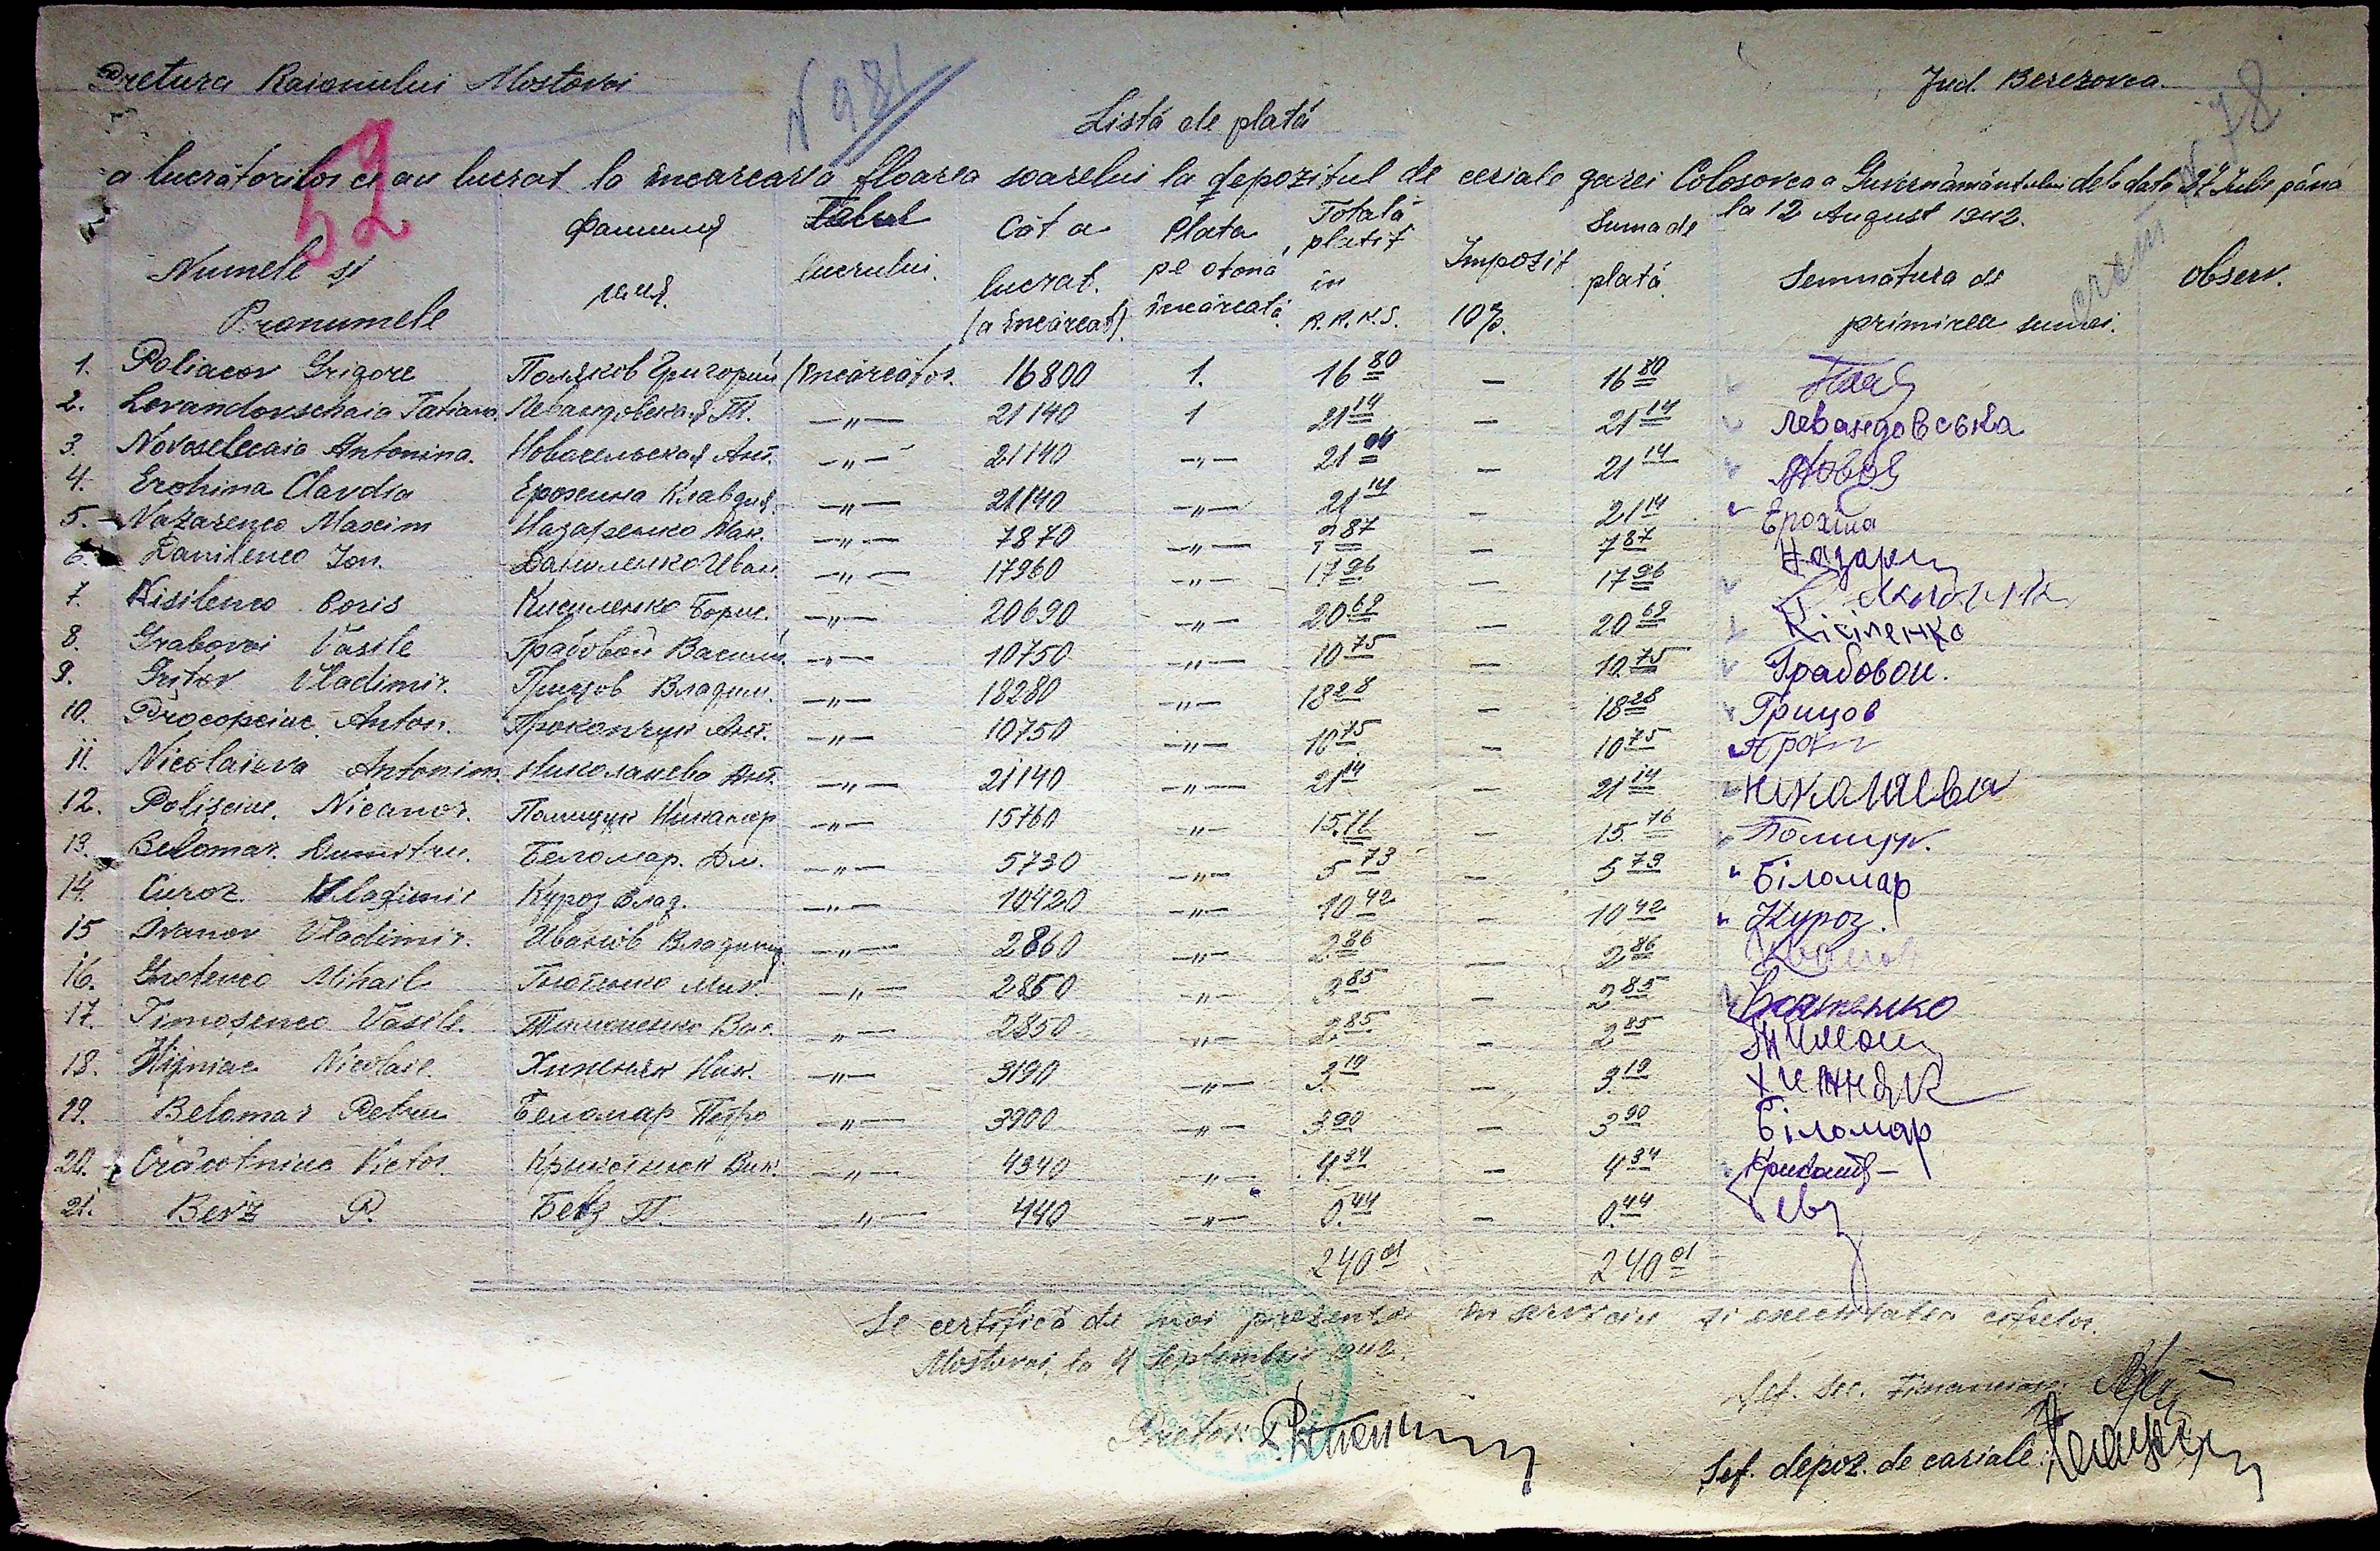 Pretura Raionului Mostovoi
N 981
Jud. Berezovca.
N 78
Listă de plată
52
a lucrătorilor ce au lucrat la încărcarea floarea soarelui la depozitul de ceriale garei Colosovca a Guvernământului de la data 27 Iulie până
la 12 August 1942.
Numele și Pronumele | Фамилия имя. | Felul lucrului. | Cât a lucrat. (a încărcat) | Plata pe o tonă încărcată | Totală plătit în R.K.K.S. | Impozit 10% | Suma de plată | Semnătura de primirea sumei. | Observ.
1. Poliacov Grigore Поляков Григорий încărcător 16800 1. 16 80 – 16 80
2. Levandovschaia Tatiana Левандовская Т. –"– 21140 1 21 14 – 21 14 Левандовська
3. Novoselecaia Antonina. Новосельская Ант. –"– 21140 –"– 21 – 21 14
4. Erohina Clavdia Ерохина Клавдия –"– 21140 –"– 21 14 – 21 14 Ерохіна
5. Nazarenco Maxim Назаренко Мак. –"– 7870 –"– 7 87 – 7 87 Назарен
6. Danilenco Ion. Даниленко Иван –"– 17960 –"– 17 96 – 17 96
7. Kisilenco Boris Кисиленко Борис. –"– 20690 –"– 20 69 – 20 69 Кісіленко
8. Grabovoi Vasile Грабовой Василий –"– 10750 –"– 10 75 – 10 75 Грабовой.
9. Grițov Vladimir. Грицов Владим. –"– 18280 –"– 18 28 – 18 28 Грицов
10. Procopciuc Anton. Прокопчук Ант. –"– 10750 –"– 10 75 – 10 75 Прокп
11. Nicolaieva Antonina Николаева Ант. –"– 21140 –"– 21 14 – 21 14 Николаева
12. Polișciuc. Nicanor. Полищук Никанор –"– 15760 –"– 15.76 – 15.76 Полищук.
13. Belomar. Dumitru. Беломар. Дм. –"– 5730 –"– 5 73 – 5 73 Біломар
14. Curoz Vladimir Куроз Влад. –"– 10420 –"– 10 42 – 10 42 Куроз.
15 Ivanov Vladimir. Иванов Владимир –"– 2860 –"– 2 86 – 2 86 Иванов
16. Mihail Мих. –"– 2850 –"– 2 85 – 2 85
17. Timoșenco Vasile. Тимошенко Вас. –"– 2850 –"– 2 85 – 2 85 Тимош
18. Hijniac Nicolaie Хижняк Ник. –"– 3190 –"– 3 19 – 3 19 Хижняк
19. Belomar Petru Беломар Петро –"– 3900 –"– 3 90 – 3 90 Біломар
20. Victor Вик. –"– 4340 –"– 4 34 – 4 34
21. Bevz P. Бевз П. –"– 440 –"– 0.44 – 0.44 Бевз
240 01 240 01
Se certifică de noi prezența în serviciu și exactitatea cifrelor.
Mostovoi, la 4 Septembrie 1942.
Șef. Sec. Financiare
Pretor:
Șef. depoz. de cariale: